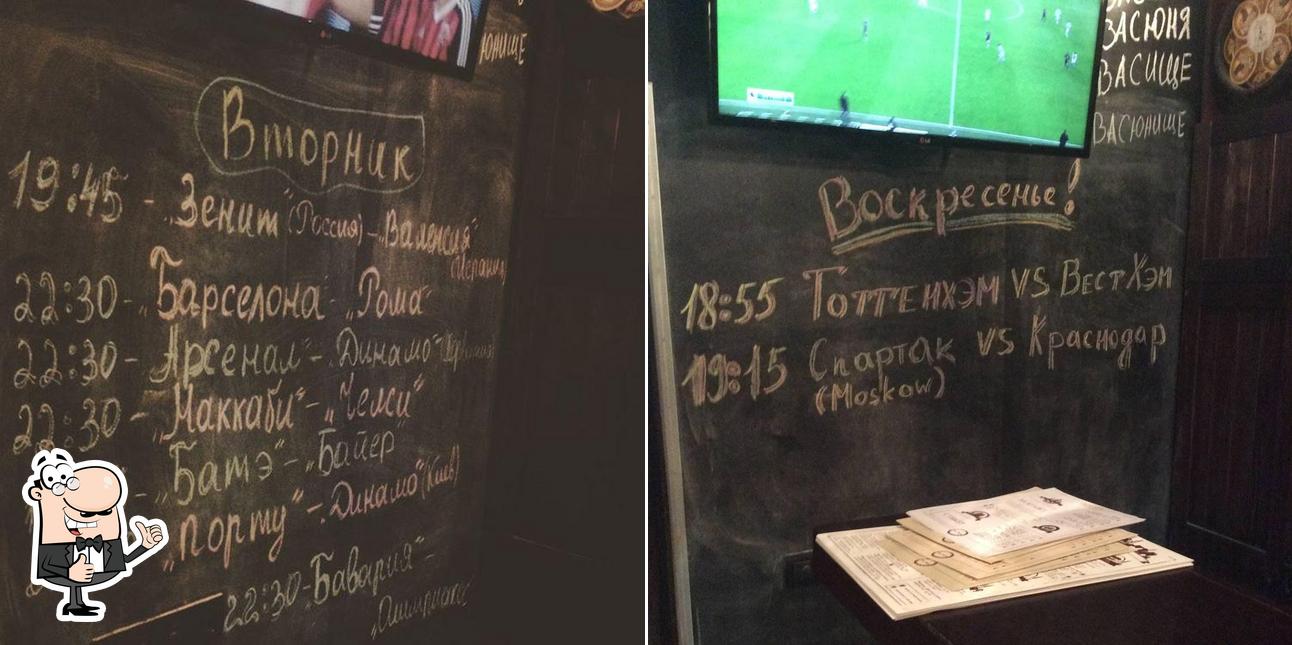 ЮНИЩЕ
Вторник
19:45 - „Зенит" (Россия) - „Валенсия"
(Испания)
22:30 - „Барселона" - „Рома"
22:30 - „Арсенал" - „Динамо"
22:30 - „Маккаби" - „Челси"
- „Батэ" - „Байер"
- „Порту" - „Динамо" (Киев)
22:30 - „Бавария" -
ВАСЮНЯ
ВАСИЩЕ
ВАСЮНИЩЕ
LG
Воскресенье!
18:55 Тоттенхэм VS ВестХэм
19:15 Спартак VS Краснодар
(Moskow)